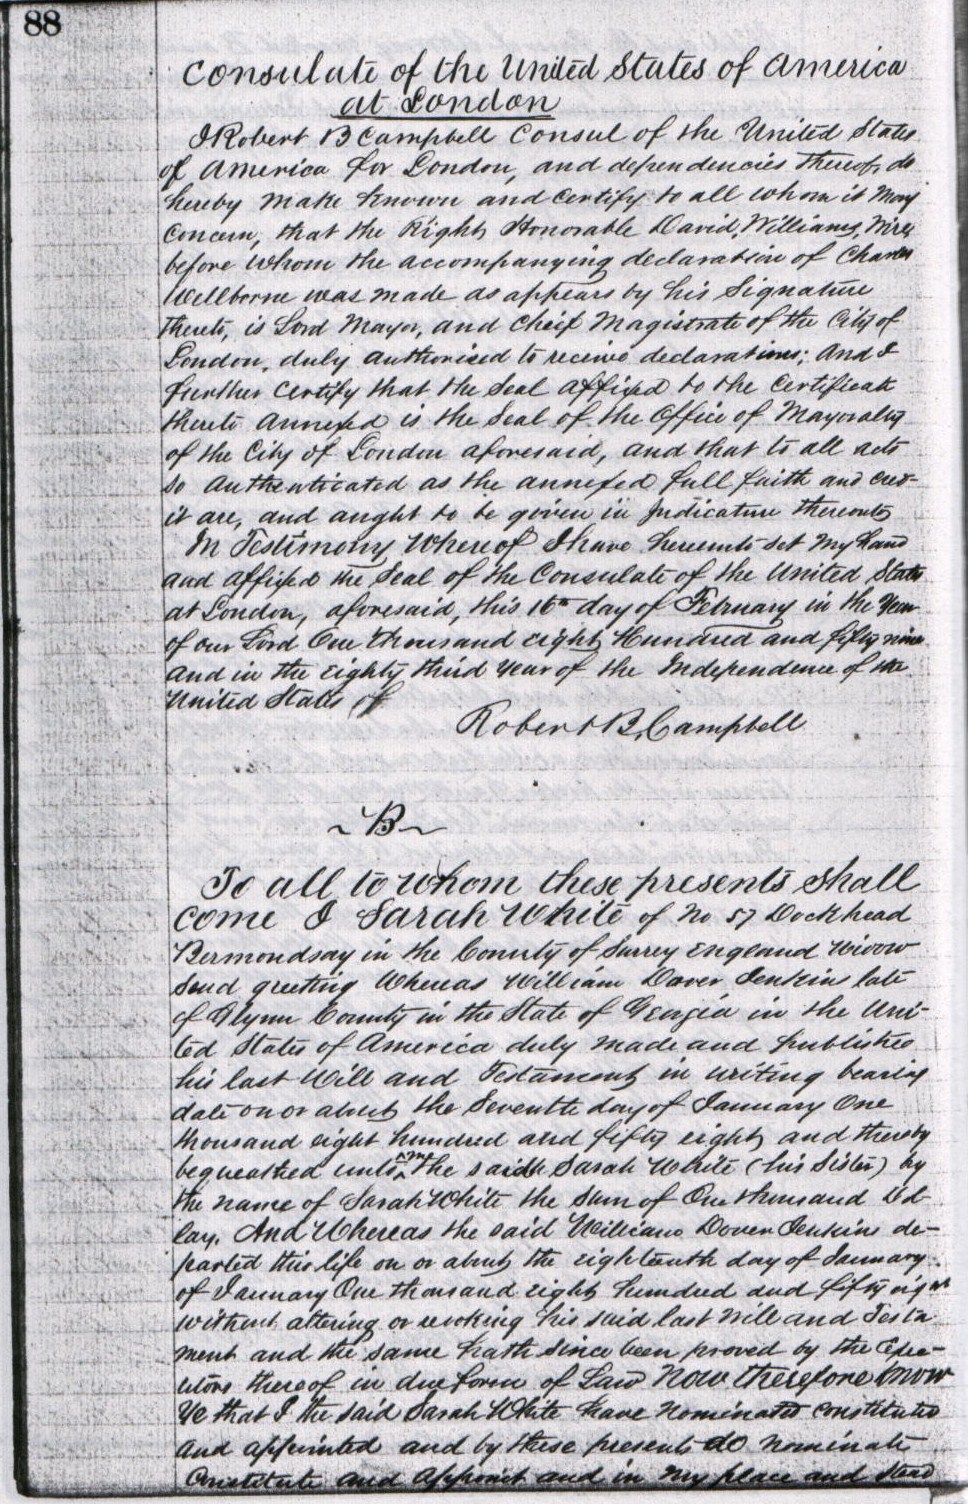 88
Consulate of the United States of America
at London
I Robert B Campbell Consul of the United States
of America for London, and dependencies thereof, do
hereby make known and certify to all whom it May
Concern, that the Right Honorable David, Williams, Wire,
before whom the accompanying declaration of Charles
Wellborne was made as appears by his Signature
thereto, is Lord Mayor, and Chief Magistrate of the City of
London, duly authorised to receive declarations; And I
further Certify that the Seal affixed to the Certificate
thereto Annexed is the Seal of the Office of Mayoralty
of the City of London aforesaid, and that to all acts
so Authenticated as the annexed full faith and cred-
it are, and aught to be given in Judicature thereout,
In Testimony, Whereof I have hereunto set My hand
and affixed the Seal of the Consulate of the United States
at London, aforesaid, this 16th day of February in the Year
of our Lord One thousand eight Hundred and fifty nine
and in the Eighty third Year of the Independence of the
United States of
Robert B, Campbell
~B~
To all to whom these presents shall
come I Sarah White of No 57 Dockhead
Bermondsay in the County of Surrey England Widow
Send greeting Whereas William Dover Jenkins late
of Glynn County in the State of Georgia in the Uni-
ted States of America duly made and published
his last Will and Testament, in writing bearing
date on or about, the Seventh day of January One
thousand eight hundred and fifty eight, and thereby
bequeathed unto me the said Sarah White (his Sister) by
the name of Sarah White the Sum of One thousand Dol-
lars. And Whereas the said William Dover Jenkins de-
parted this life on or about the eighteenth day of January
of January One thousand eight hundred and fifty eight
without altering or revoking his said last Will and Testa
ment and the same hath since been proved by the Exec-
utors thereof in due form of Law Now therefore know
Ye that I the said Sarah White have nominated constituted
and appointed and by these presents do nominate
Constitute and Appoint and in my place and Stead